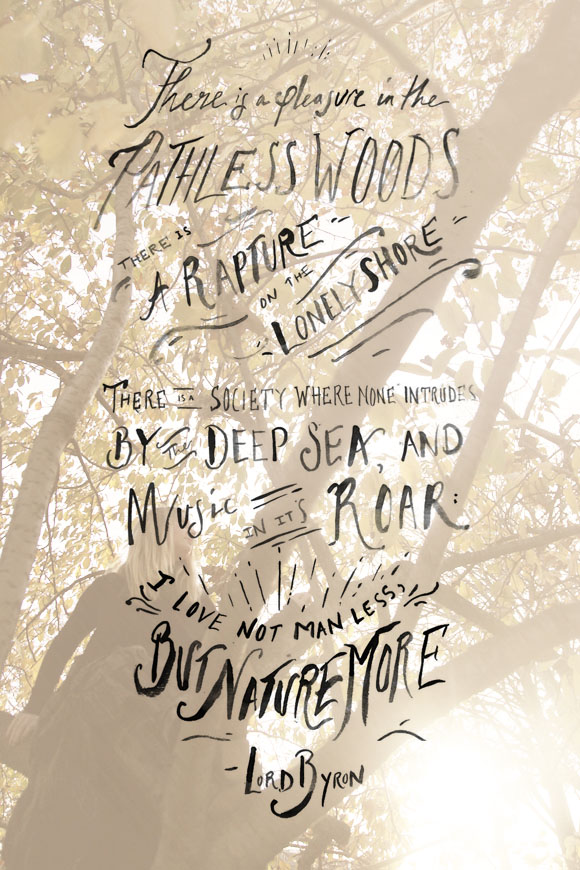 There is a pleasure in the
PATHLESS WOODS
THERE IS
A RAPTURE
ON THE
LONELY SHORE
THERE IS A SOCIETY WHERE NONE INTRUDES
BY THE DEEP SEA, AND
MUSIC IN IT'S ROAR:
I LOVE NOT MAN LESS,
BUT NATURE MORE
- LORD BYRON